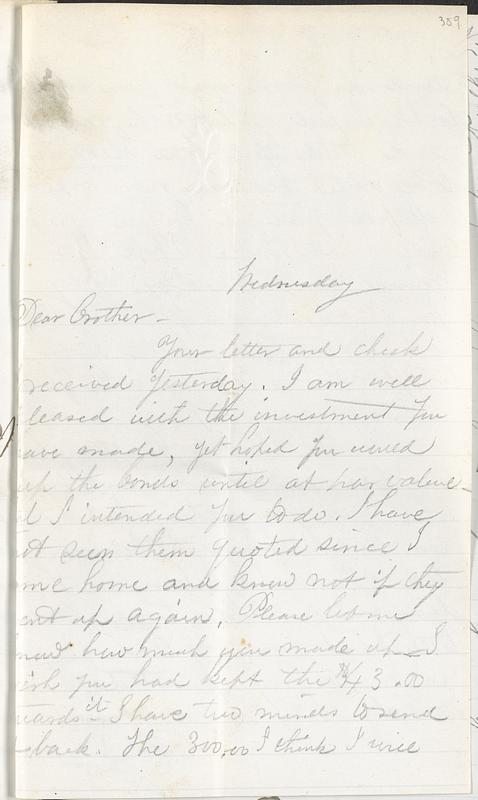 359
Wednesday
Dear Brother -
Your letter and check
received yesterday. I am well
leased with the investment you
ave made, yet hoped you would
the bonds until at par value -
I intended you to do. I have
ot seen them quoted since I
me home and know not if they
ent up again. Please let me
now how much you made up - I
ish you had kept the $43.00
wards it - I have two minds to send
back. The 300,00 I think I will